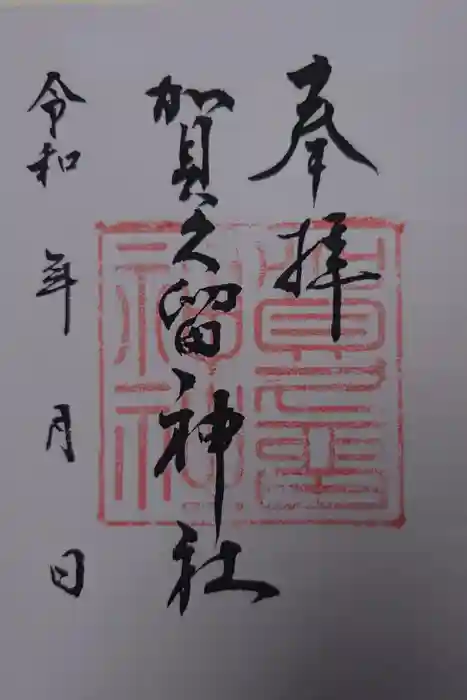 奉拝
賀久留神社
令和 年 月 日
賀久留
神社